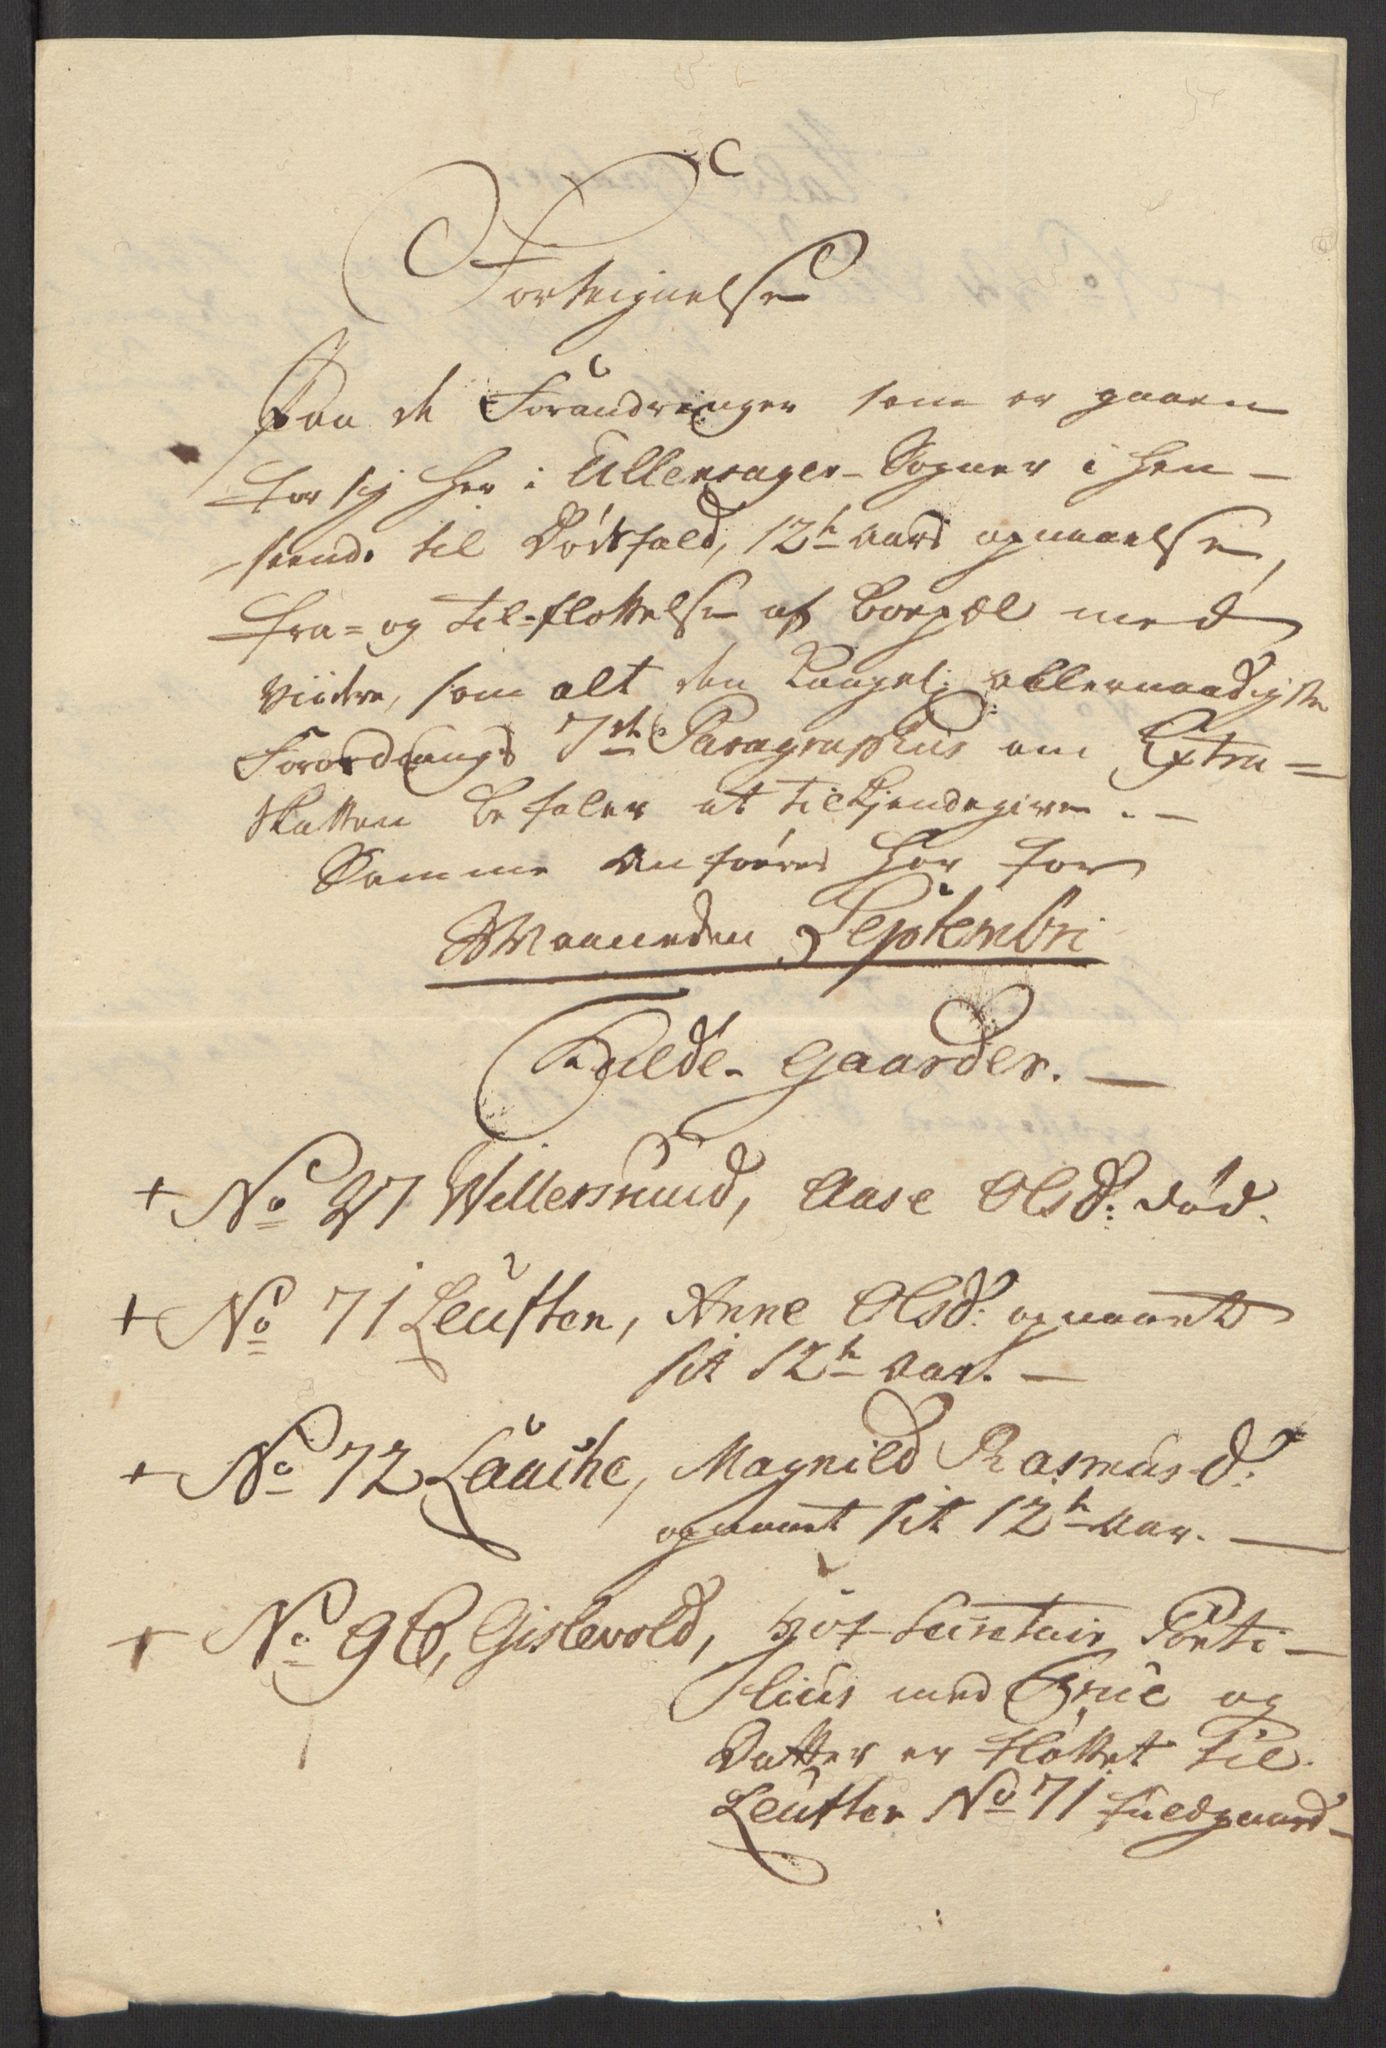 C
Forteignelse
Paa de Forandringer som er gaaen
for sig her i Ullensager Sogner i hen-
seende til Dødsfald, 12te Aars opnaaelse,
fra- og til-flottelse af Boepæl med
viidre, som alt den Kongel: allernaadigste
Forordnings 7de Paragraphus om Extra-
skatten befaler at tilkjendegive. -
Samme anføres her for
Maaneden Septembri
Fulde-Gaarder. -
+ No 27 Willersruud, Aase Olsd: død.
+ No 71 Leutten, Anne Olsd: opnaaet
sit 12te Aar. -
+ No 72 Laache, Magnild Rasmusd:
opnaaet sit 12te Aar. -
+ No 96, Gislevold, Hof-Secretair Ponti-
med Frue og
Datter er fløttet til
Leutten No 71 fuldgaard -